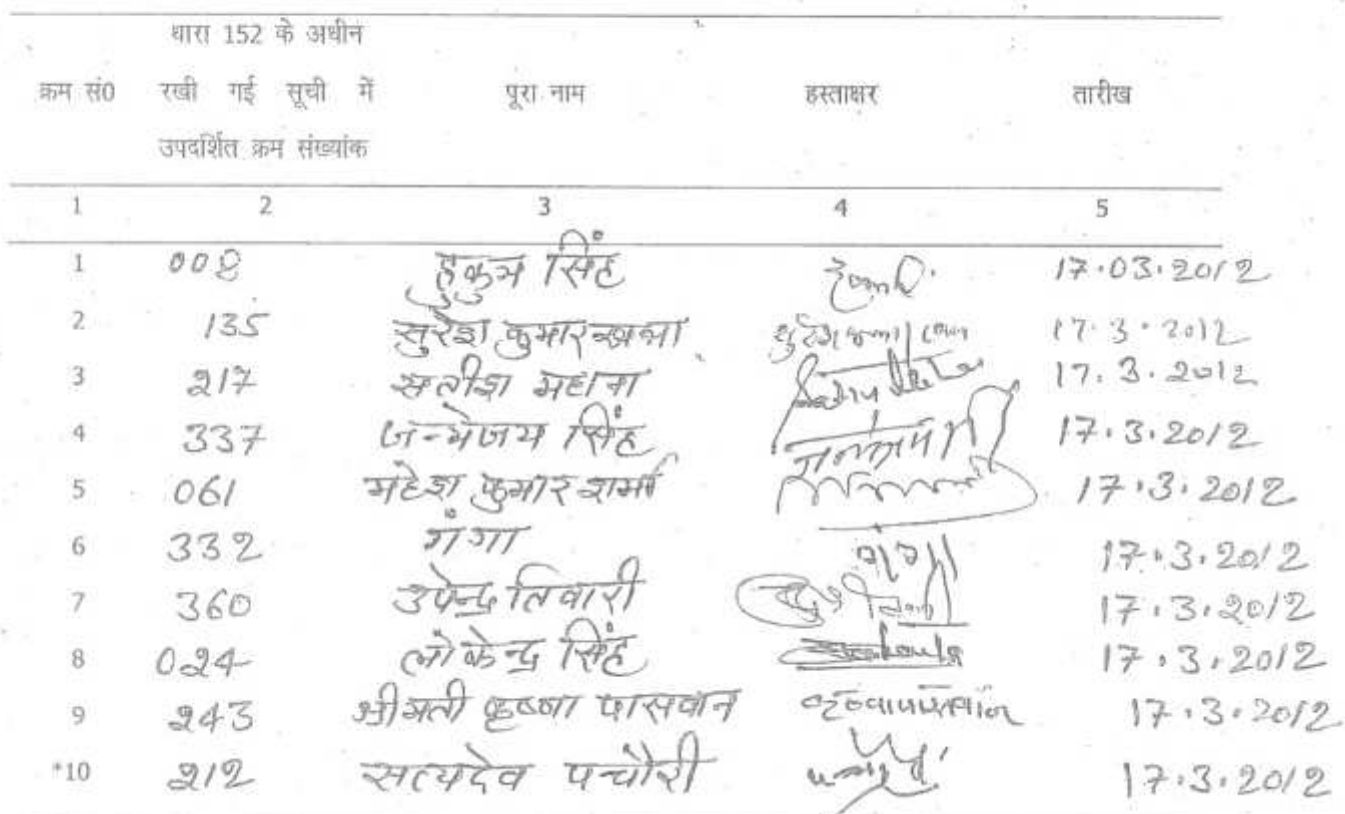 धारा 152 के अधीन
क्रम सं0 रखी गई सूची में पूरा नाम हस्ताक्षर तारीख
उपदर्शित क्रम संख्यांक
1 2 3 4 5
1 008 हुकुम सिंह 17.03.2012
2 135 सुरेश कुमार खन्ना 17.3.2012
3 217 सतीश महाना 17.3.2012
4 337 जन्मेजय सिंह 17.3.2012
5 061 महेश कुमार शर्मा 17.3.2012
6 332 गंगा गंगा 17.3.2012
7 360 उपेन्द्र तिवारी 17.3.2012
8 024 लोकेन्द्र सिंह 17.3.2012
9 243 श्रीमती कृष्णा पासवान कृष्णा पासवान 17.3.2012
*10 212 सत्यदेव पचौरी 17.3.2012